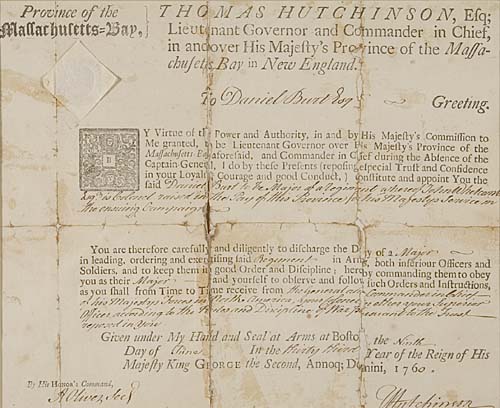 Province of the
Massachusetts=Bay,
THOMAS HUTCHINSON, Esq;
Lieutenant Governor and Commander in Chief,
in and over His Majesty's Province of the Massa-
chusetts Bay in New England.
To Daniel Burt Esqr Greeting.
BY Virtue of the Power and Authority, in and by His Majesty's Commission to
Me granted, to be Lieutenant Governor over His Majesty's Province of the
Massachusetts-Bay aforesaid, and Commander in Chief during the Absence of the
Captain General, I do by these Presents (reposing especial Trust and Confidence
in your Loyalty, Courage and good Conduct,) Constitute and appoint You the
said Daniel Burt to be Major of a Regiment whereof John
Esqr is Colonel raised in the Pay of this Province for his Majesty's Service in
the ensuing Campaign
You are therefore carefully and diligently to discharge the Duty of a Major
in leading, ordering and exercising said Regiment in Arms, both inferiour Officers and
Soldiers, and to keep them in good Order and Discipline; hereby commanding them to obey
you as their Major and yourself to observe and follow such Orders and Instructions,
as you shall from Time to Time receive from the General & Commander in chief
of his Majestys Forces in North America, your Colonel or other your Superior
Officers according to the Rules and Discipline of War pursuant to the Trust
reposed in you
Given under My Hand and Seal at Arms at Boston, the Ninth
Day of In the thirty third Year of the Reign of His
Majesty King GEORGE the Second, Annoq; Domini, 1760.
By His HONOR'S Command,
A Oliver Secy
Hutchinson